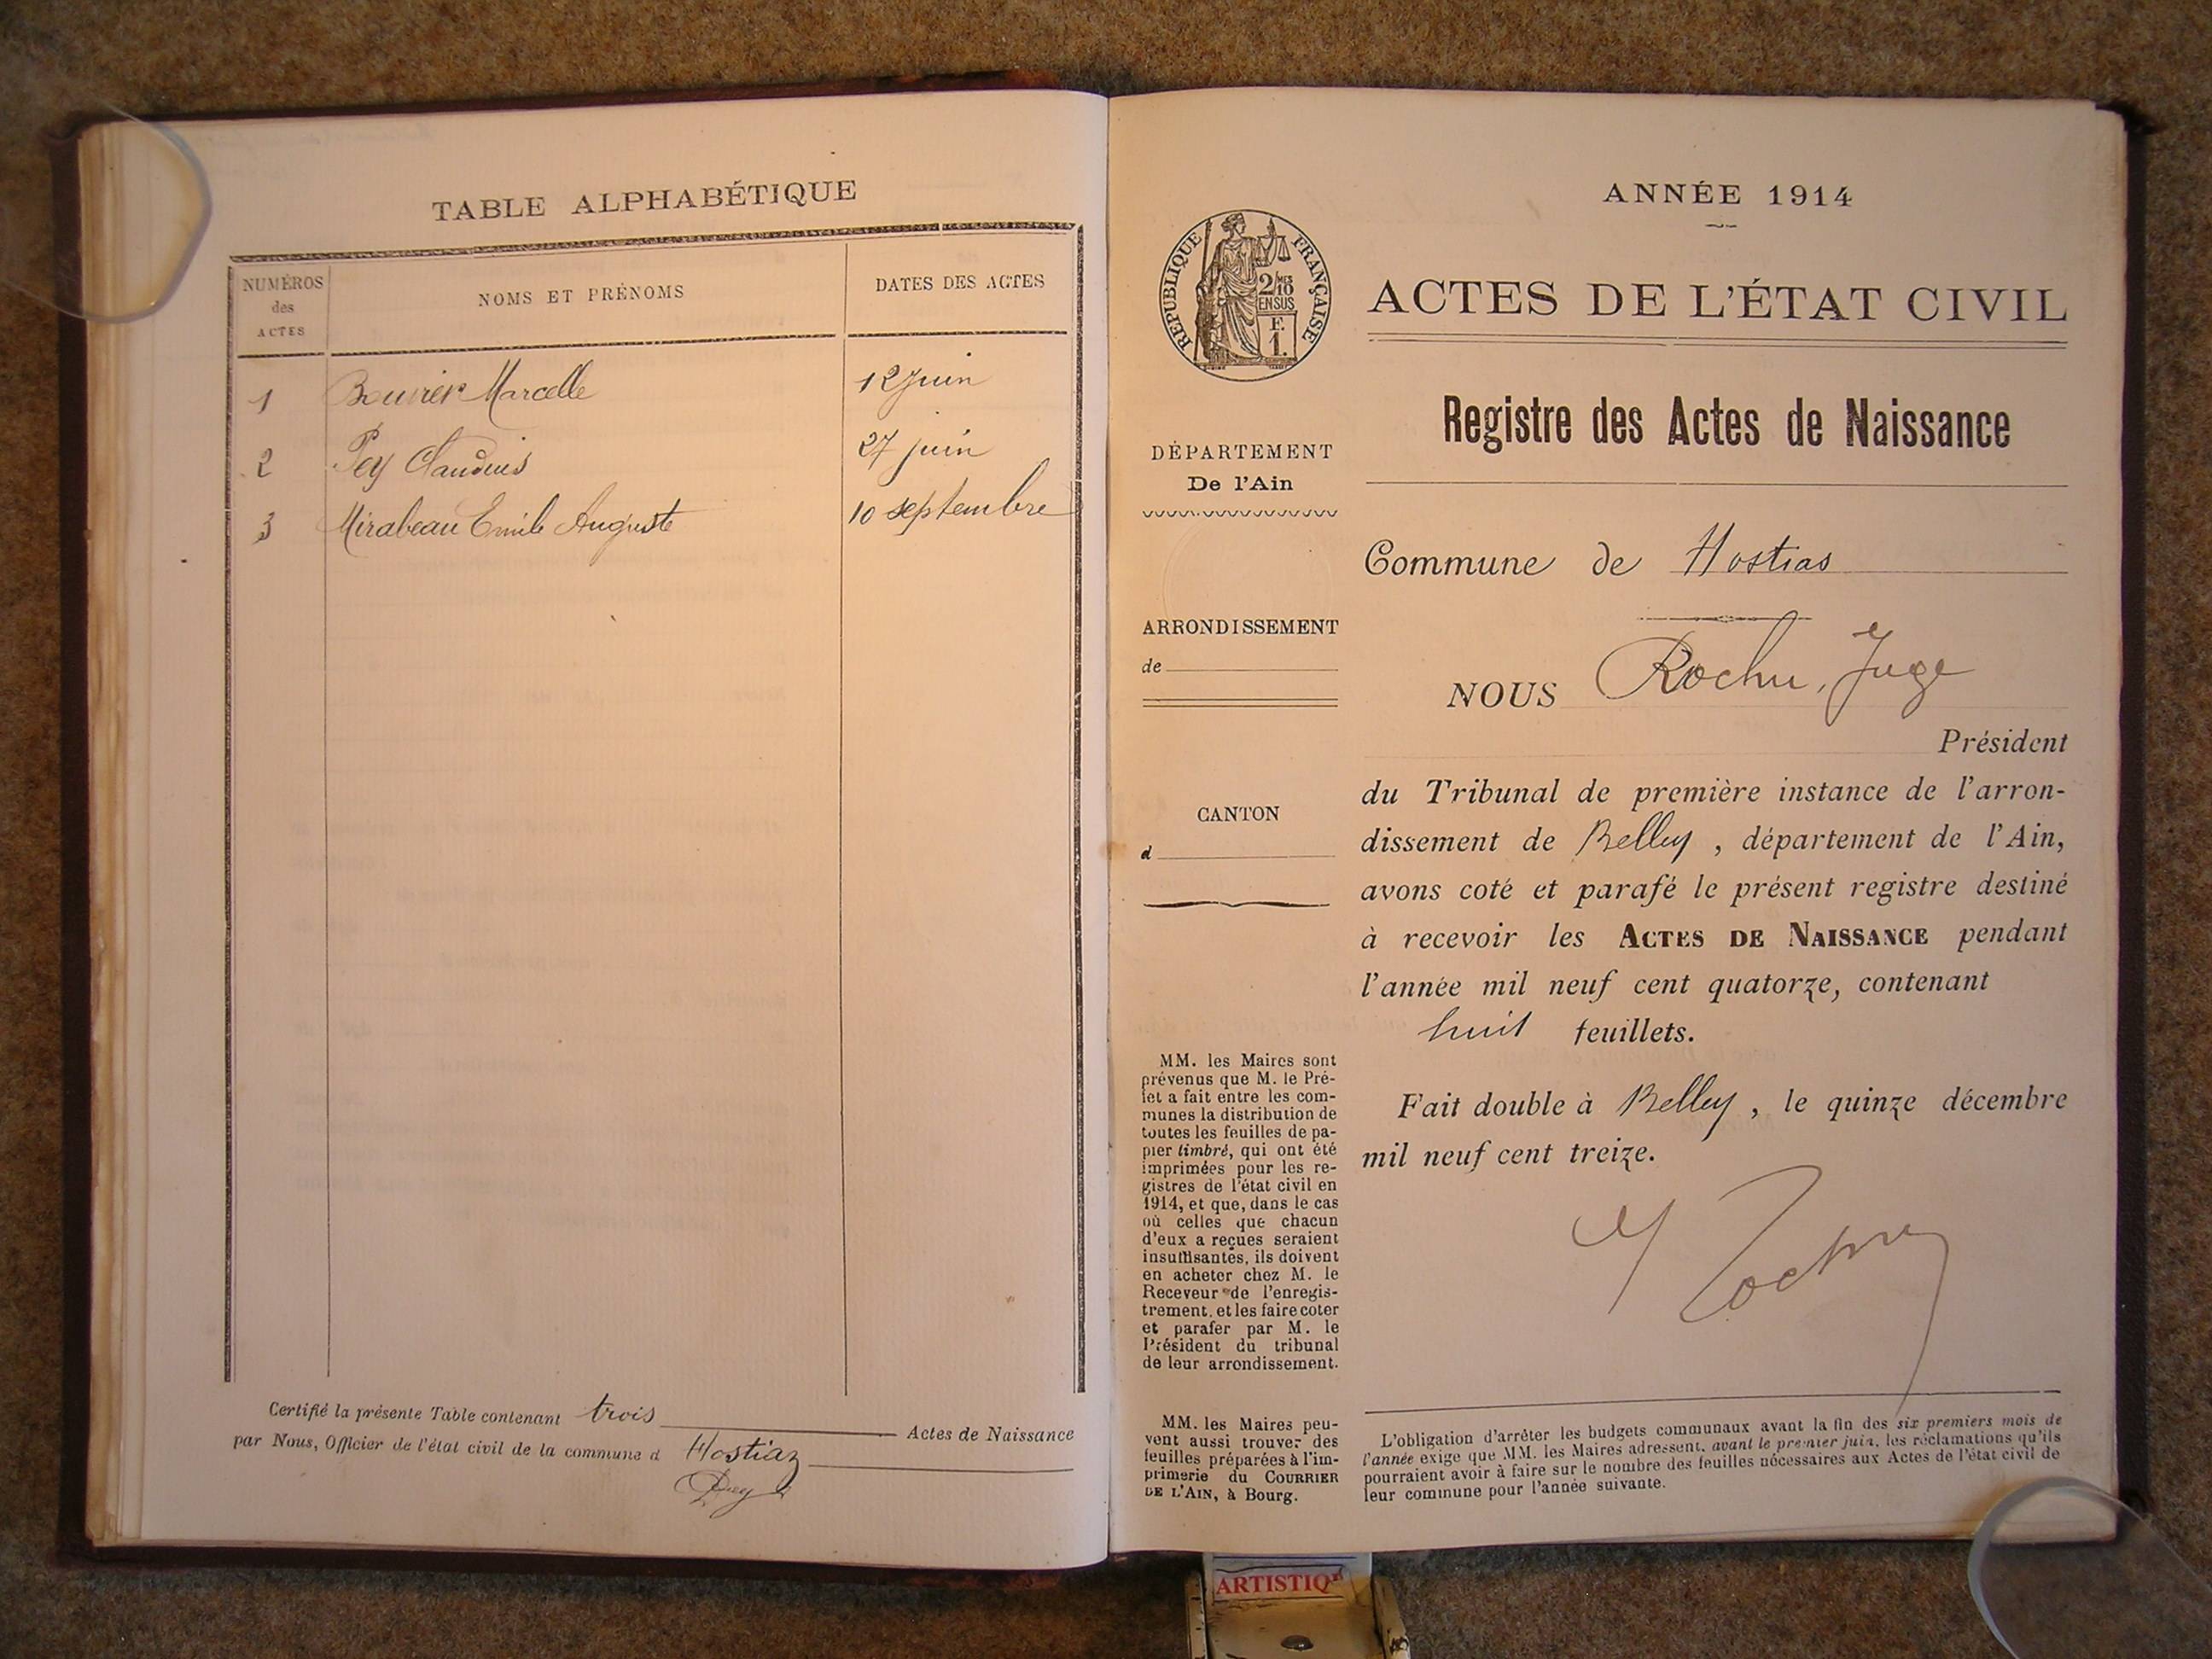 TABLE ALPHABÉTIQUE
NUMÉROS
des
ACTES
NOMS ET PRÉNOMS
DATES DES ACTES
1 Bouvier Marcelle 12 juin
2 Pey Claudius 27 juin
3 Mirabeau Emile Auguste 10 septembre
Certifié la présente Table contenant trois Actes de Naissance
par Nous, Officier de l'état civil de la commune d Hostiaz
ANNÉE 1914
RÉPUBLIQUE FRANÇAISE
2/10 MES
EN SUS
F.
1.
ACTES DE L'ÉTAT CIVIL
Registre des Actes de Naissance
DÉPARTEMENT
De l'Ain
ARRONDISSEMENT
de
CANTON
d
MM. les Maires sont
prévenus que M. le Pré-
fet a fait entre les com-
munes la distribution de
toutes les feuilles de pa-
pier timbré, qui ont été
imprimées pour les re-
gistres de l'état civil en
1914, et que, dans le cas
où celles que chacun
d'eux a reçues seraient
insuffisantes, ils doivent
en acheter chez M. le
Receveur de l'enregis-
trement, et les faire coter
et parafer par M. le
Président du tribunal
de leur arrondissement.
MM. les Maires peu-
vent aussi trouver des
feuilles préparées à l'im-
primerie du COURRIER
DE L'AIN, à Bourg.
Commune de Hostias
NOUS Rochu, Juge
Président
du Tribunal de première instance de l'arron-
dissement de Belley, département de l'Ain,
avons coté et parafé le présent registre destiné
à recevoir les ACTES DE NAISSANCE pendant
l'année mil neuf cent quatorze, contenant
huit feuillets.
Fait double à Belley, le quinze décembre
mil neuf cent treize.
Rochu
L'obligation d'arrêter les budgets communaux avant la fin des six premiers mois de
l'année exige que MM. les Maires adressent, avant le premier juin, les réclamations qu'ils
pourraient avoir à faire sur le nombre des feuilles nécessaires aux Actes de l'état civil de
leur commune pour l'année suivante.
ARTISTIQ